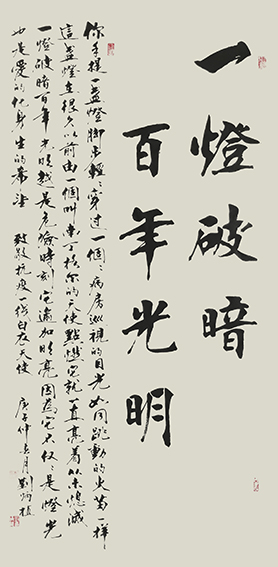 一燈破暗
百年光明
你手提一盞燈脚步輕輕穿過一個個病房巡視的目光如同跳動的火苗一樣
這盞燈在很久以前由一個叫南丁格尔的天使點燃它就一直亮着從未熄滅
一燈破暗百年光明越是危險時刻它還加明亮因為它不僅僅是燈光
也是愛的化身生的希望 致敬抗疫一线白衣天使 庚子仲春月劉炳森